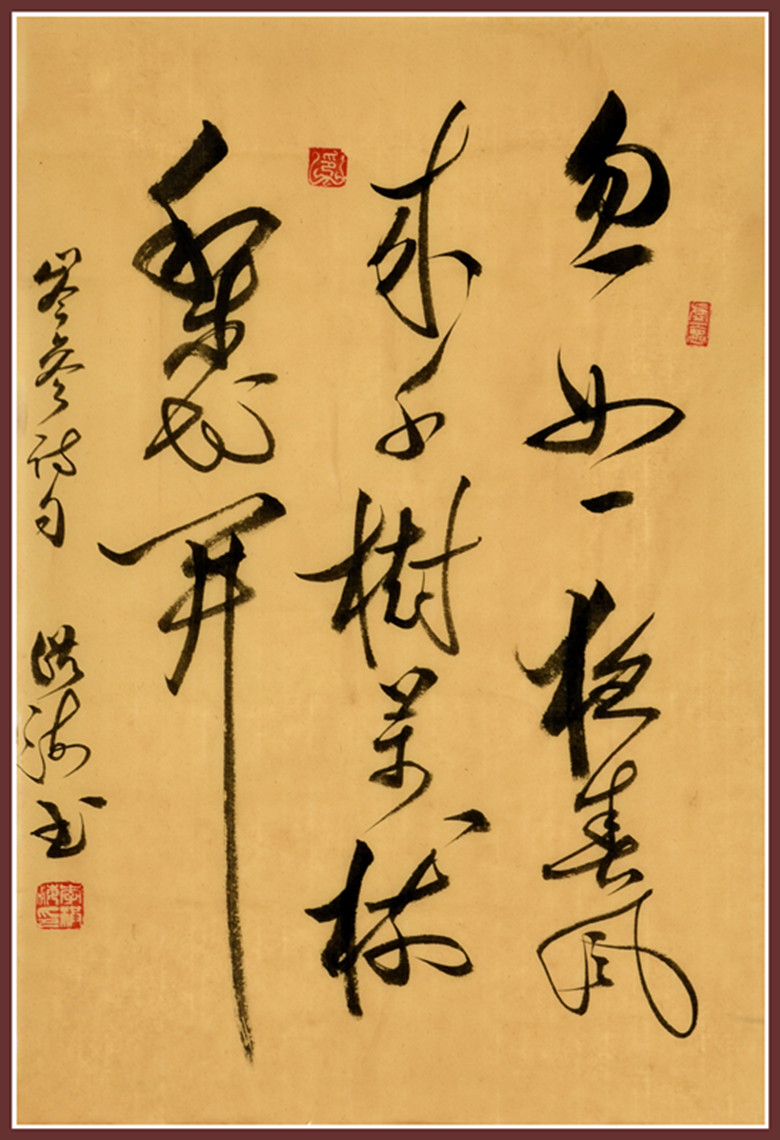 忽如一夜春風
來千樹萬樹
梨花開
岑參詩句 洪海书